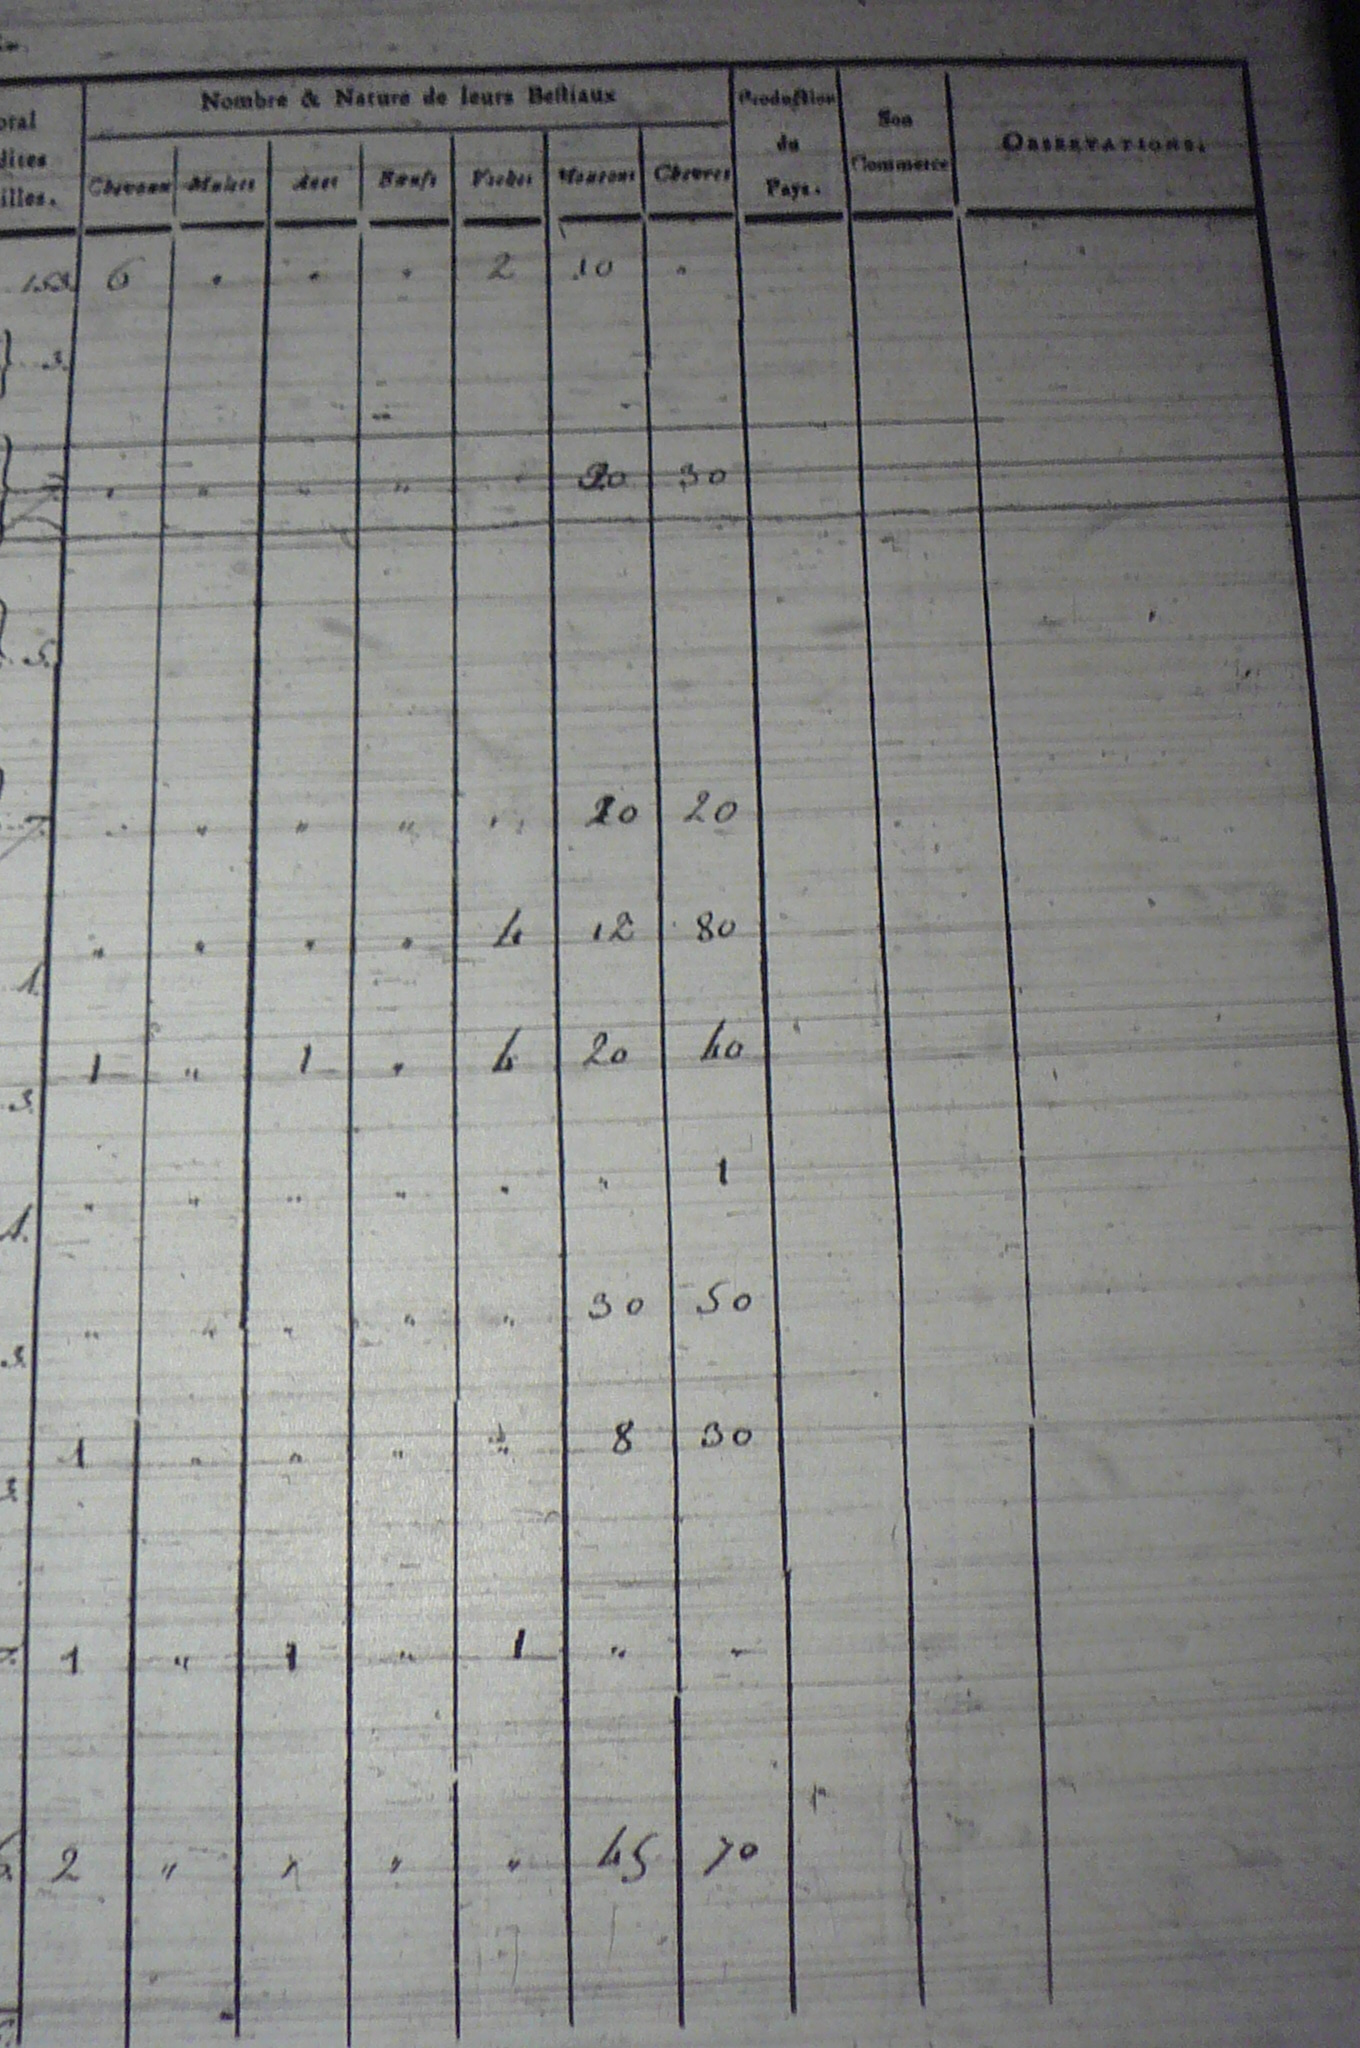 Nombre & Nature de leurs Bestiaux
Production
du
Pays.
Son
Commerce
OBSERVATIONS.
Chevaux Mulets Anes Bœufs Vaches Moutons Chèvres
6 " " " 2 10 "
3.
" " " " " 20 30
5.
" " " " " 20
" " " " 4 12 80
1.
1 " 1 " 4 20 40
3.
" " " " " " 1
1.
" " " " " 30 50
3.
1 " " " " 8 30
3.
1 " 1 " 1 " "
2 " " " 45 70